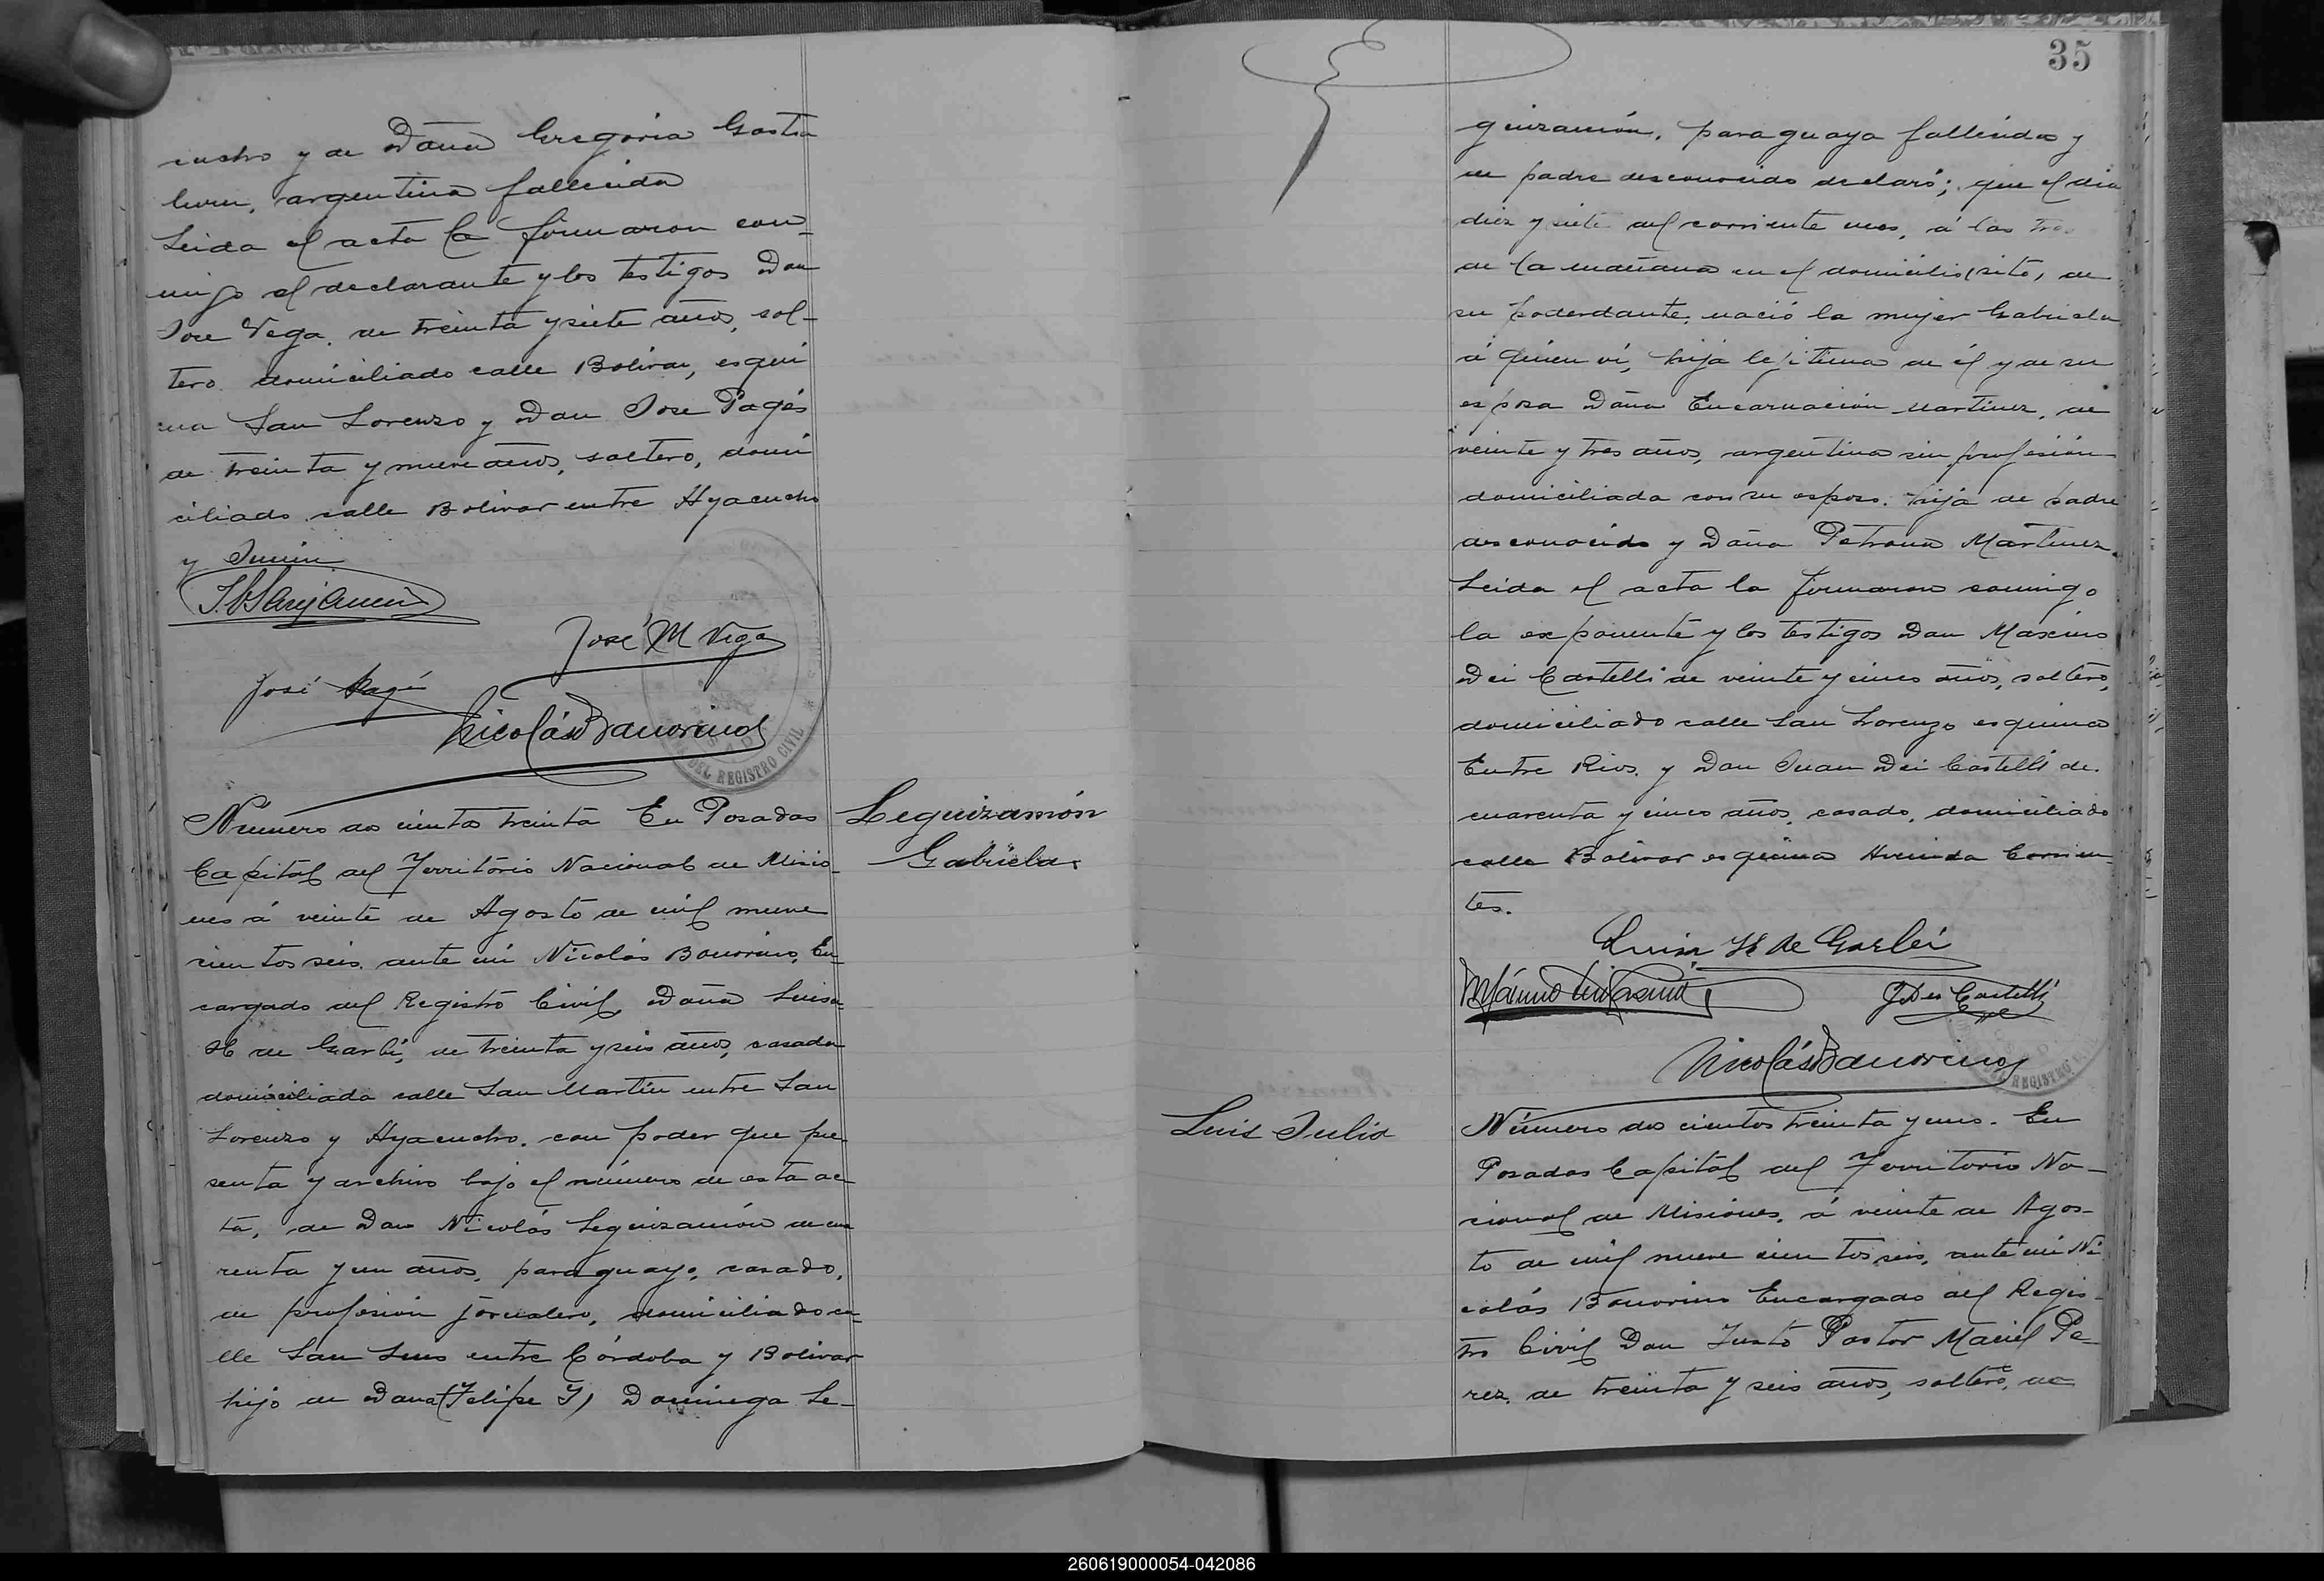 cucho y de Doña Gregoria Gasta
leum, argentina fallecida
Leida el acta la firmaron con-
migo el declarante y los testigos Don
Jose Vega, de treinta y siete años, sol-
tero domiciliado calle Bolivar, esqui
na San Lorenzo y Don Jose Pagés
de treinta y nueve años, soltero, domi
ciliado calle Bolivar entre Ayacucho
y Junin
José M Vega
José Pagés
Nicolás Bonorino
DEL REGISTRO CIVIL
Número dos cientos treinta En Posadas
Capital del Territorio Nacional de Misio-
nes á veinte de Agosto de mil nueve
cientos seis, ante mi Nicolás Bonorino, En-
cargado del Registro Civil, Doña Luisa
H de Garlei, de treinta y seis años, casada
domiciliada calle San Martin entre San
Lorenzo y Ayacucho, con poder que pre-
senta y archivo bajo el número de esta ac-
ta, de Don Nicolás Leguizamón de cua
renta y un años, paraguayo, casado,
de profesión jornalero, domiciliado ca-
lle San Luis entre Córdoba y Bolivar
hijo de Dona (Felipe T) Dominga Le-
Leguizamón
Gabriela.
35
guizamón, paraguaya fallecida y
de padre desconocido declaró; que el dia
diez y siete del corriente mes, á las tres
de la mañana en el domicilio (sito, de
su poderdante, nació la mujer Gabriela
á quien ví, hija lejitima de él y de su
esposa Doña Encarnación Martinez, de
veinte y tres años, argentina sin profesión
domiciliada con su esposo. hija de padre
desconocido y Doña Petrona Martinez.
Leida el acta la firmaron conmigo
la exponente y los testigos Don Maximo
Dei Castelli de veinte y cinco años, soltero,
domiciliado calle San Lorenzo esquina
Entre Rios, y Don Juan Dei Castelli de
cuarenta y cinco años, casado, domiciliado
calle Bolivar esquina Avenida Corrien-
tes.
Luisa H de Garlei
J Dei Castelli
Nicolás Bonorino
DEL REGISTRO
Luis Julio
Número dos cientos treinta y uno. En
Posadas Capital del Territorio Na-
cional de Misiones, á veinte de Agos-
to de mil nueve cientos seis, ante mi Ni
colás Bonorino Encargado del Regis-
tro Civil Don Justo Pastor Maciel Pe-
rez, de treinta y seis años, soltero, de
260619000054-042086